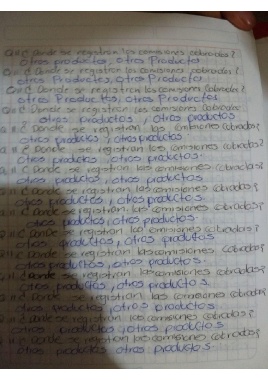 ¿Donde se registran las comisiones cobradas?
otros productos, otros Producto
¿Donde se registran las comisiones cobradas?
otros Productos, otros Producto
¿Donde se registran las comisiones cobradas?
otros Productos, otros Productos
¿Donde se registran las comisiones cobradas?
otros productos, otros productos
¿Donde se registran las comisiones cobradas?
otros productos, otros productos
¿Donde se registran las comisiones cobradas?
otros productos, otros productos.
¿Donde se registran las comisiones cobradas?
otros productos, otros productos.
¿Donde se registran las comisiones cobradas?
otros productos, otros productos.
¿Donde se registran las comisiones cobradas?
otros productos, otros productos
¿Donde se registran las comisiones cobradas?
otros productos, otros productos
¿Donde se registran las comisiones cobradas?
otros productos, otros productos.
¿Donde se registran las comisiones cobradas?
otros productos, otros productos.
¿Donde se registran las comisiones cobradas?
otros productos, otros productos
¿Donde se registran las comisiones cobradas?
otros productos, otros productos
¿Donde se registran las comisiones cobradas?
otros productos, otros productos.